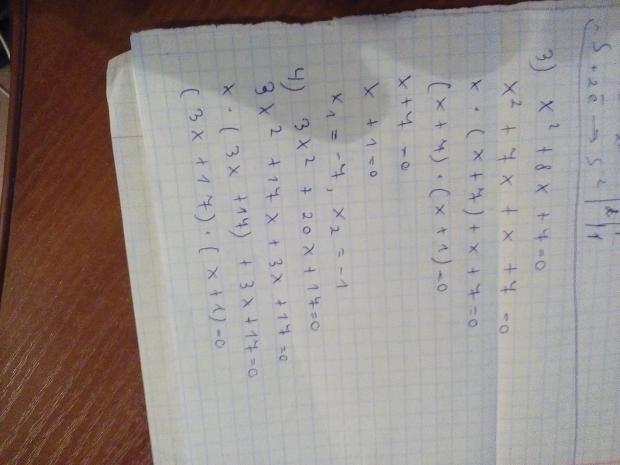 3) x² + 8x + 7 = 0
x² + 7x + x + 7 = 0
x · (x + 7) + x + 7 = 0
(x + 7) · (x + 1) = 0
x + 7 = 0
x + 1 = 0
x₁ = -7, x₂ = -1
4) 3x² + 20x + 17 = 0
3x² + 17x + 3x + 17 = 0
x · (3x + 17) + 3x + 17 = 0
(3x + 17) · (x + 1) = 0